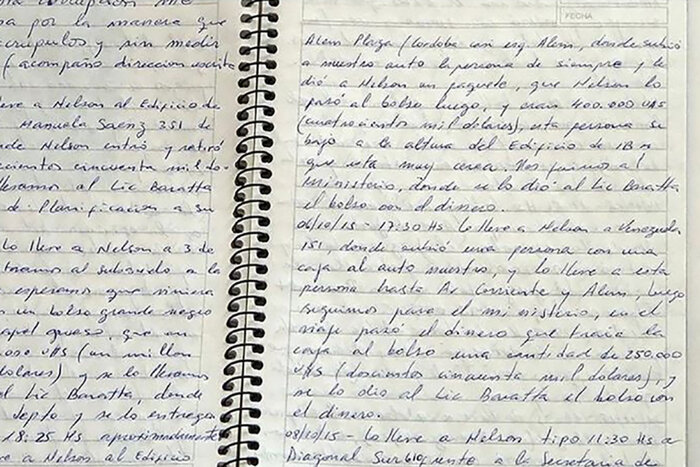 por la manera que
escrupulos y sin medir
(acompaño direccion escrita
lleve a Nelson al Edificio de
Manuela Saenz 351 de
donde Nelson entró y retiró
cincuenta mil do-
llevamos al Lic Baratta
de Planificacion a su
lo lleve a Nelson a 3 de
entramos al subsuelo a la
esperamos que viniera
un bolso grande negro
papel grueso, que en
000 U$S (un millon
dolares) y se lo llevamos
al Lic Baratta, donde
depto y se lo entregó
18:25 Hs aproximadamente
a Nelson al Edificio
FECHA
Alem Plaza (Cordoba casi esq. Alem, donde subió
a nuestro auto la persona de siempre y le
dió a Nelson un paquete, que Nelson lo
pasó al bolso luego, y eran 400.000 U$S
(cuatrocientos mil dolares), esta persona se
bajo a la altura del Edificio de IBM
que esta muy cerca. Nos fuimos al
ministerio, donde se lo dió al Lic Baratta
el bolso con el dinero.
06/10/15 - 17:30 Hs lo lleve a Nelson a Venezuela
151, donde subió una persona con una
caja al auto nuestro, y lo lleve a esta
persona hasta Av Corriente y Alem, luego
seguimos para el ministerio, en el
viaje pasó el dinero que traia la
caja al bolso una cantidad de 250.000
U$S (doscientos cincuenta mil dolares), y
se lo dio al Lic Baratta el bolso con
el dinero.
08/10/15 - Lo lleve a Nelson tipo 11:30 Hs a
Diagonal Sur 610, frente a la Secretaria de